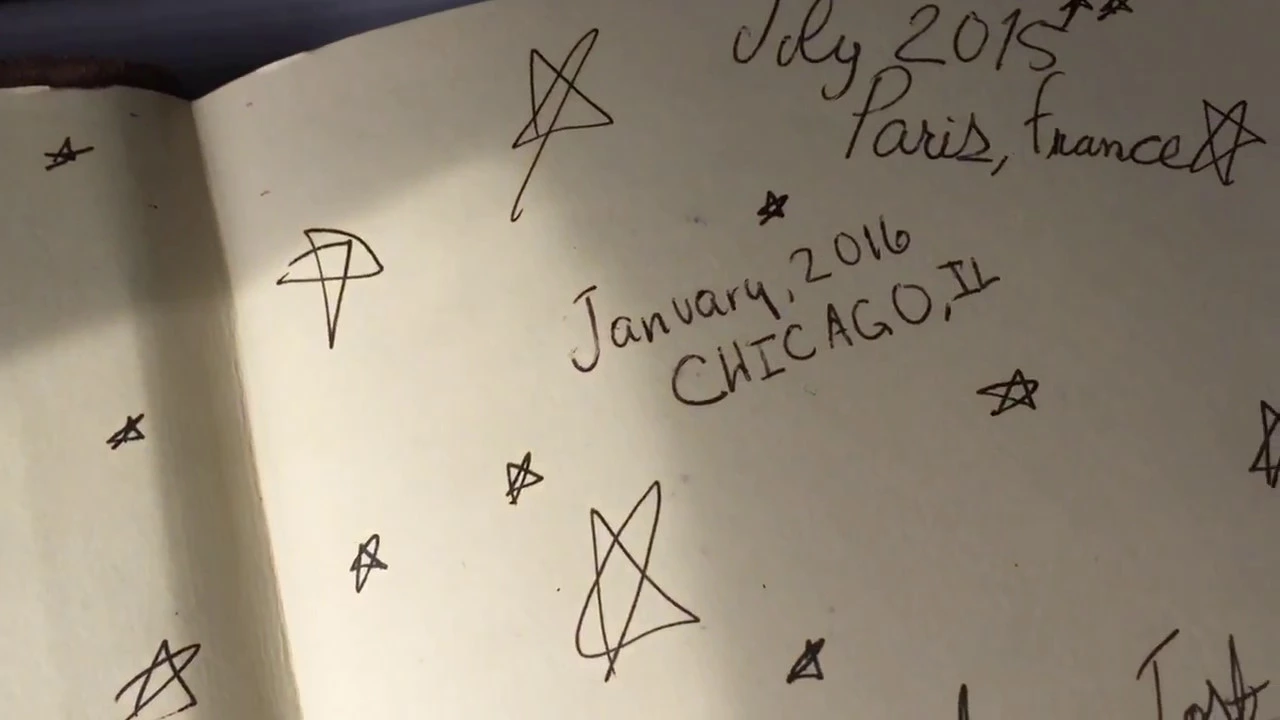 July 2015
Paris, France
January, 2016
CHICAGO, IL